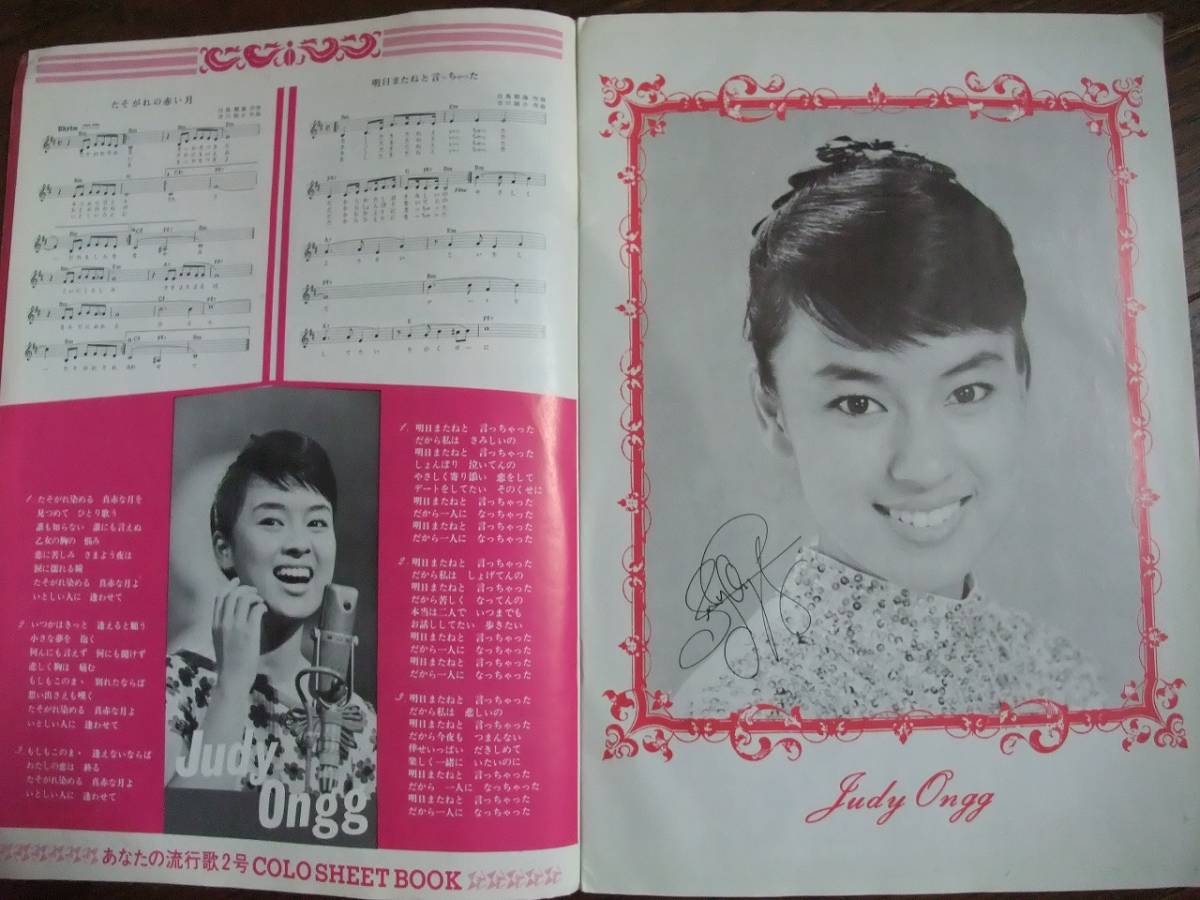 たそがれの赤い月
明日またねと言っちゃった
1. たそがれ染める 真赤な月を
見つめて ひとり歌う
誰も知らない 誰にも言えぬ
乙女の胸の 悩み
恋に苦しみ さまよう夜は
涙に濡れる瞳
たそがれ染める 真赤な月よ
いとしい人に 逢わせて
2. いつかはきっと 逢えると願う
小さな夢を 抱く
何んにも言えず 何にも聞けず
恋しく胸は 痛む
もしもこのまゝ 別れたならば
思い出さえも嘆く
たそがれ染める 真赤な月よ
いとしい人に 逢わせて
3. もしもこのまゝ 逢えないならば
わたしの恋は 終る
たそがれ染める 真赤な月よ
いとしい人に 逢わせて
Judy
Ongg
1. 明日またねと 言っちゃった
だから私は さみしいの
明日またねと 言っちゃった
しょんぼり 泣いてんの
やさしく寄り添い 恋をして
デートをしてたい そのくせに
明日またねと 言っちゃった
だから一人に なっちゃった
明日またねと 言っちゃった
だから一人に なっちゃった
2. 明日またねと 言っちゃった
だから私は しょげてんの
明日またねと 言っちゃった
だから苦しく なってんの
本当は二人で いつまでも
お話ししてたい 歩きたい
明日またねと 言っちゃった
だから一人に なっちゃった
明日またねと 言っちゃった
だから一人に なっちゃった
3. 明日またねと 言っちゃった
だから私は 悲しいの
明日またねと 言っちゃった
だから今夜も つまんない
倖せいっぱい だきしめて
楽しく一緒に いたいのに
明日またねと 言っちゃった
だから 一人に なっちゃった
明日またねと 言っちゃった
だから一人に なっちゃった
あなたの流行歌2号 COLO SHEET BOOK
Judy Ongg